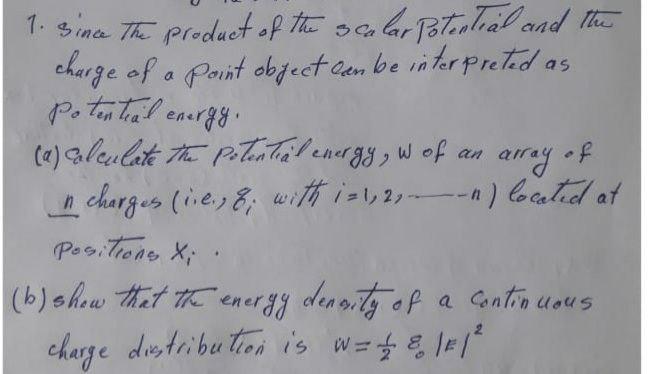 1. Since The product of the scalar Potential and the
charge of a point object can be interpreted as
potential energy.
(a) Calculate The Potential energy, W of an array of
n charges (i.e., q_i with i=1,2,-----n) located at
Positions X_i.
(b) show that the energy density of a Continuous
charge distribution is w = 1/2 ε_0 |E|^2